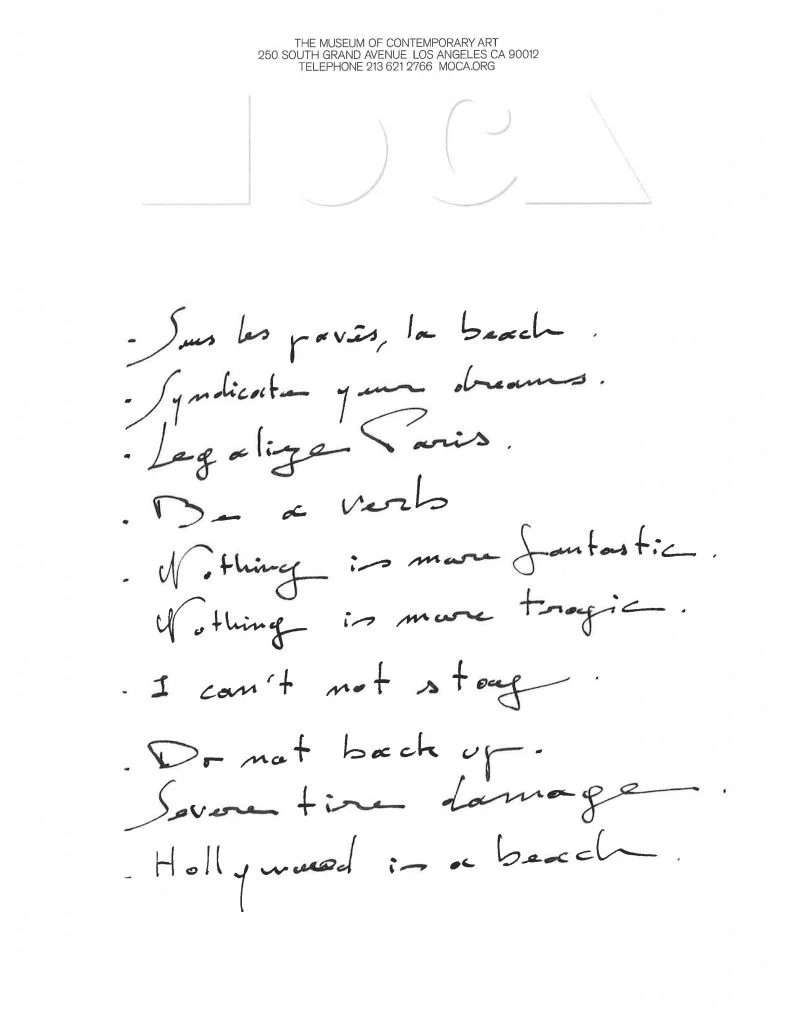 THE MUSEUM OF CONTEMPORARY ART
250 SOUTH GRAND AVENUE LOS ANGELES CA 90012
TELEPHONE 213 621 2766 MOCA.ORG
MOCA
- Sous les pavés, la beach.
- Syndicate your dreams.
- Legalize Paris.
- Be a verb
- Nothing is more fantastic.
Nothing is more tragic.
- I can't not stay.
- Do not back up.
Severe tire damage.
- Hollywood is a beach.